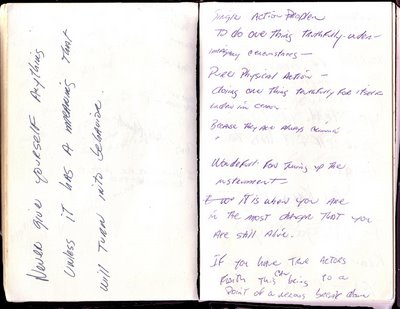 Never give yourself Anything
unless it has a meaning that
will turn into behavior.
Single Action Problem
To do one thing truthfully under
imaginary circumstances —
Pure Physical Action —
doing one thing truthfully for
Because they are always
Wonderful for Tuning up the
instrument —
It is when you are
in the most danger that you
are still Alive.
If you have Two Actors
this can bring to a
Point of a nervous break down